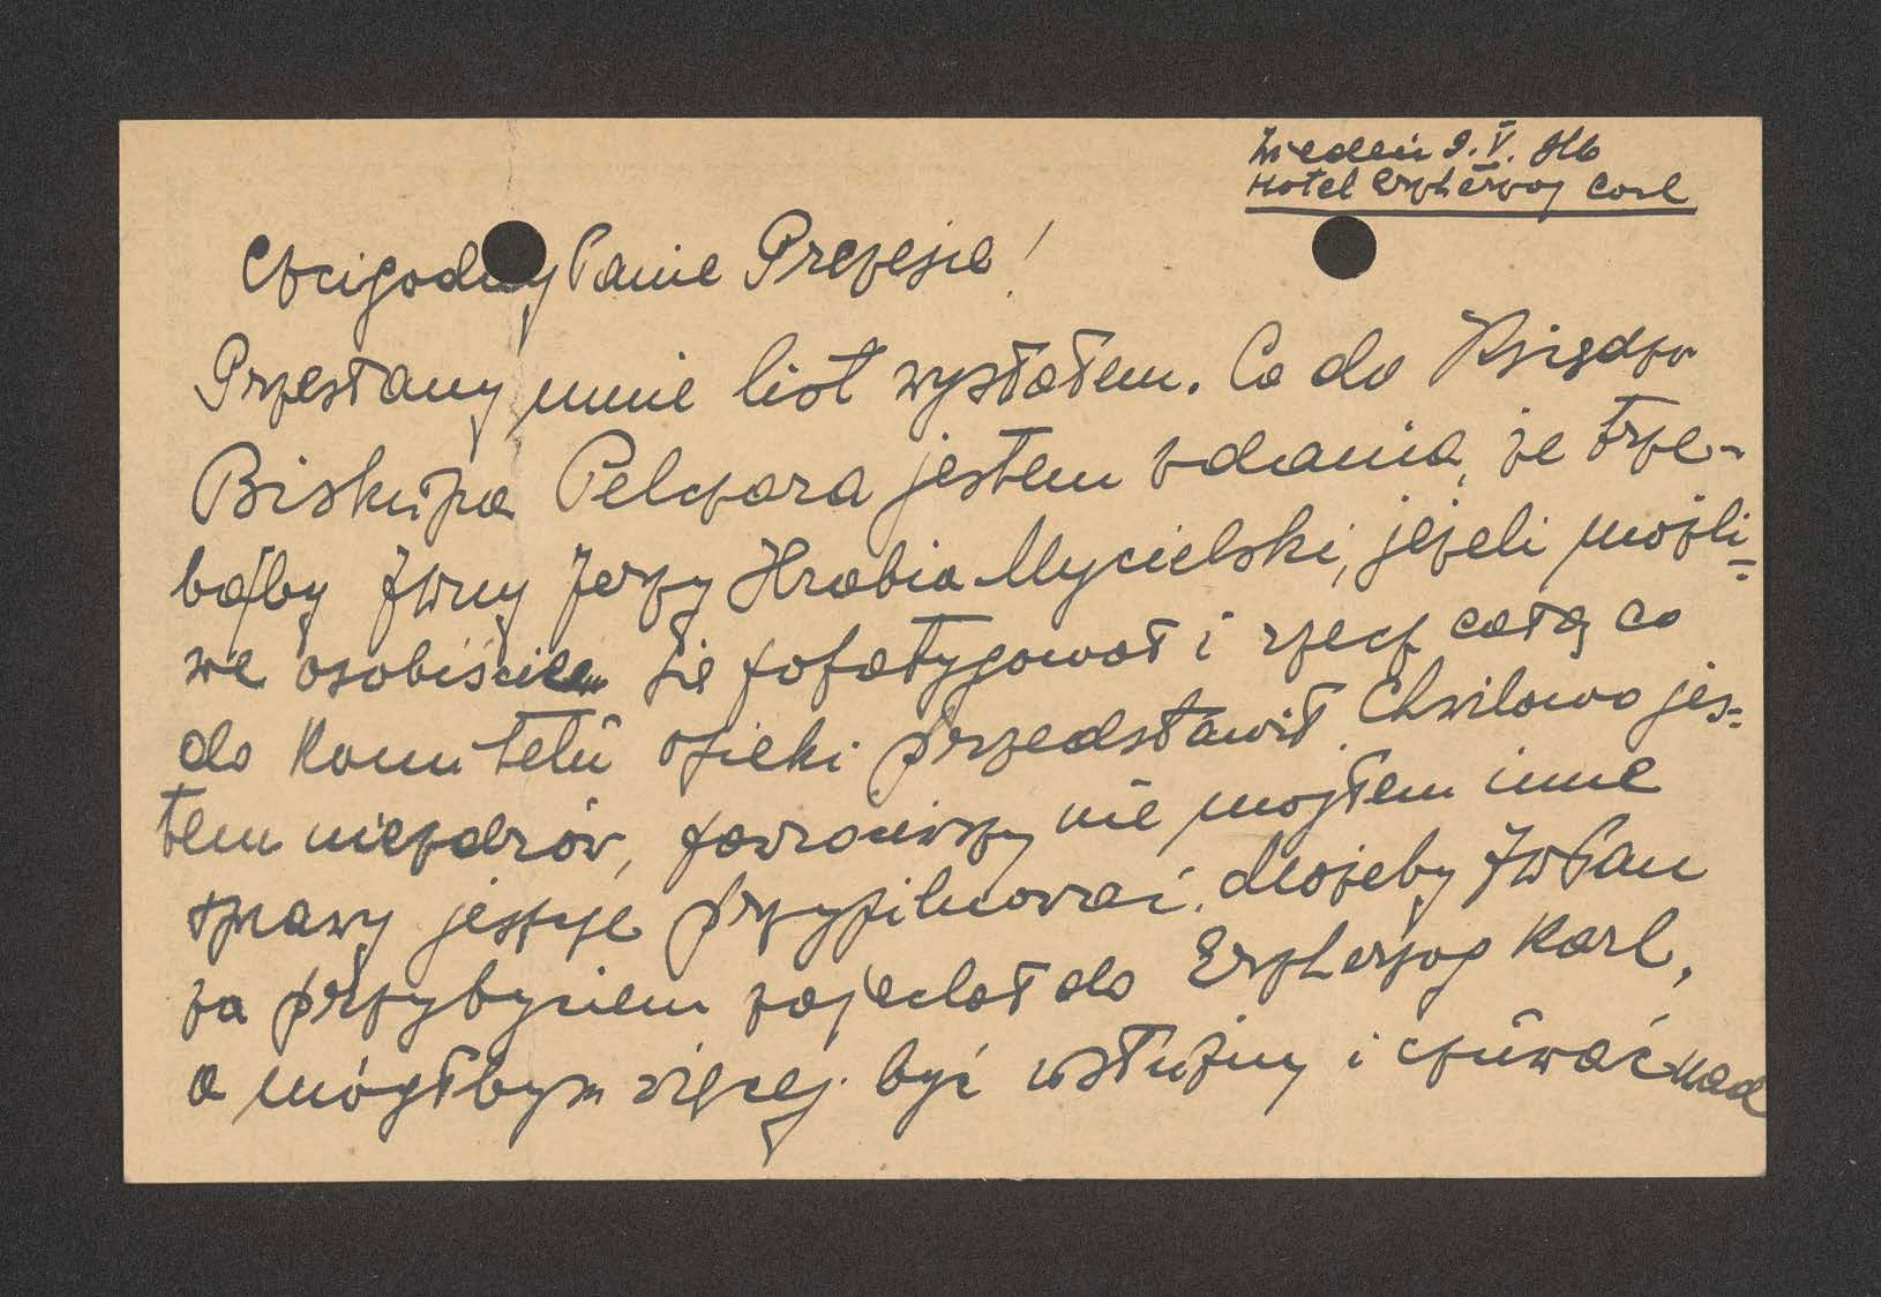 Wiedeń 9.V.916
Hotel Erzherzog Carl
Czcigodny Panie Prezesie!
Przesłany mnie list wysłałem. Co do Księdza
Biskupa Pelczara jestem zdania, że trze-
bałby JWny Jerzy Hrabia Mycielski, jeżeli możli=
we osobiście się pofatygował i rzecz całą co
do Komitetu opieki przedstawił. Chwilowo jes=
tem niezdrów, powróciwszy nie mogłem inne
sprawy jeszcze przypilnować. Możeby JWPan
za przybyciem zajechał do Erzherzog Karl,
a mógłbym więcej być usłużny i czuwać nad